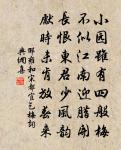 小園雖有四般梅
不似江南迎臘開
長恨東君少風韻
獻時未肯放春來
㫰雍和宋都官乞梅詞
典網集